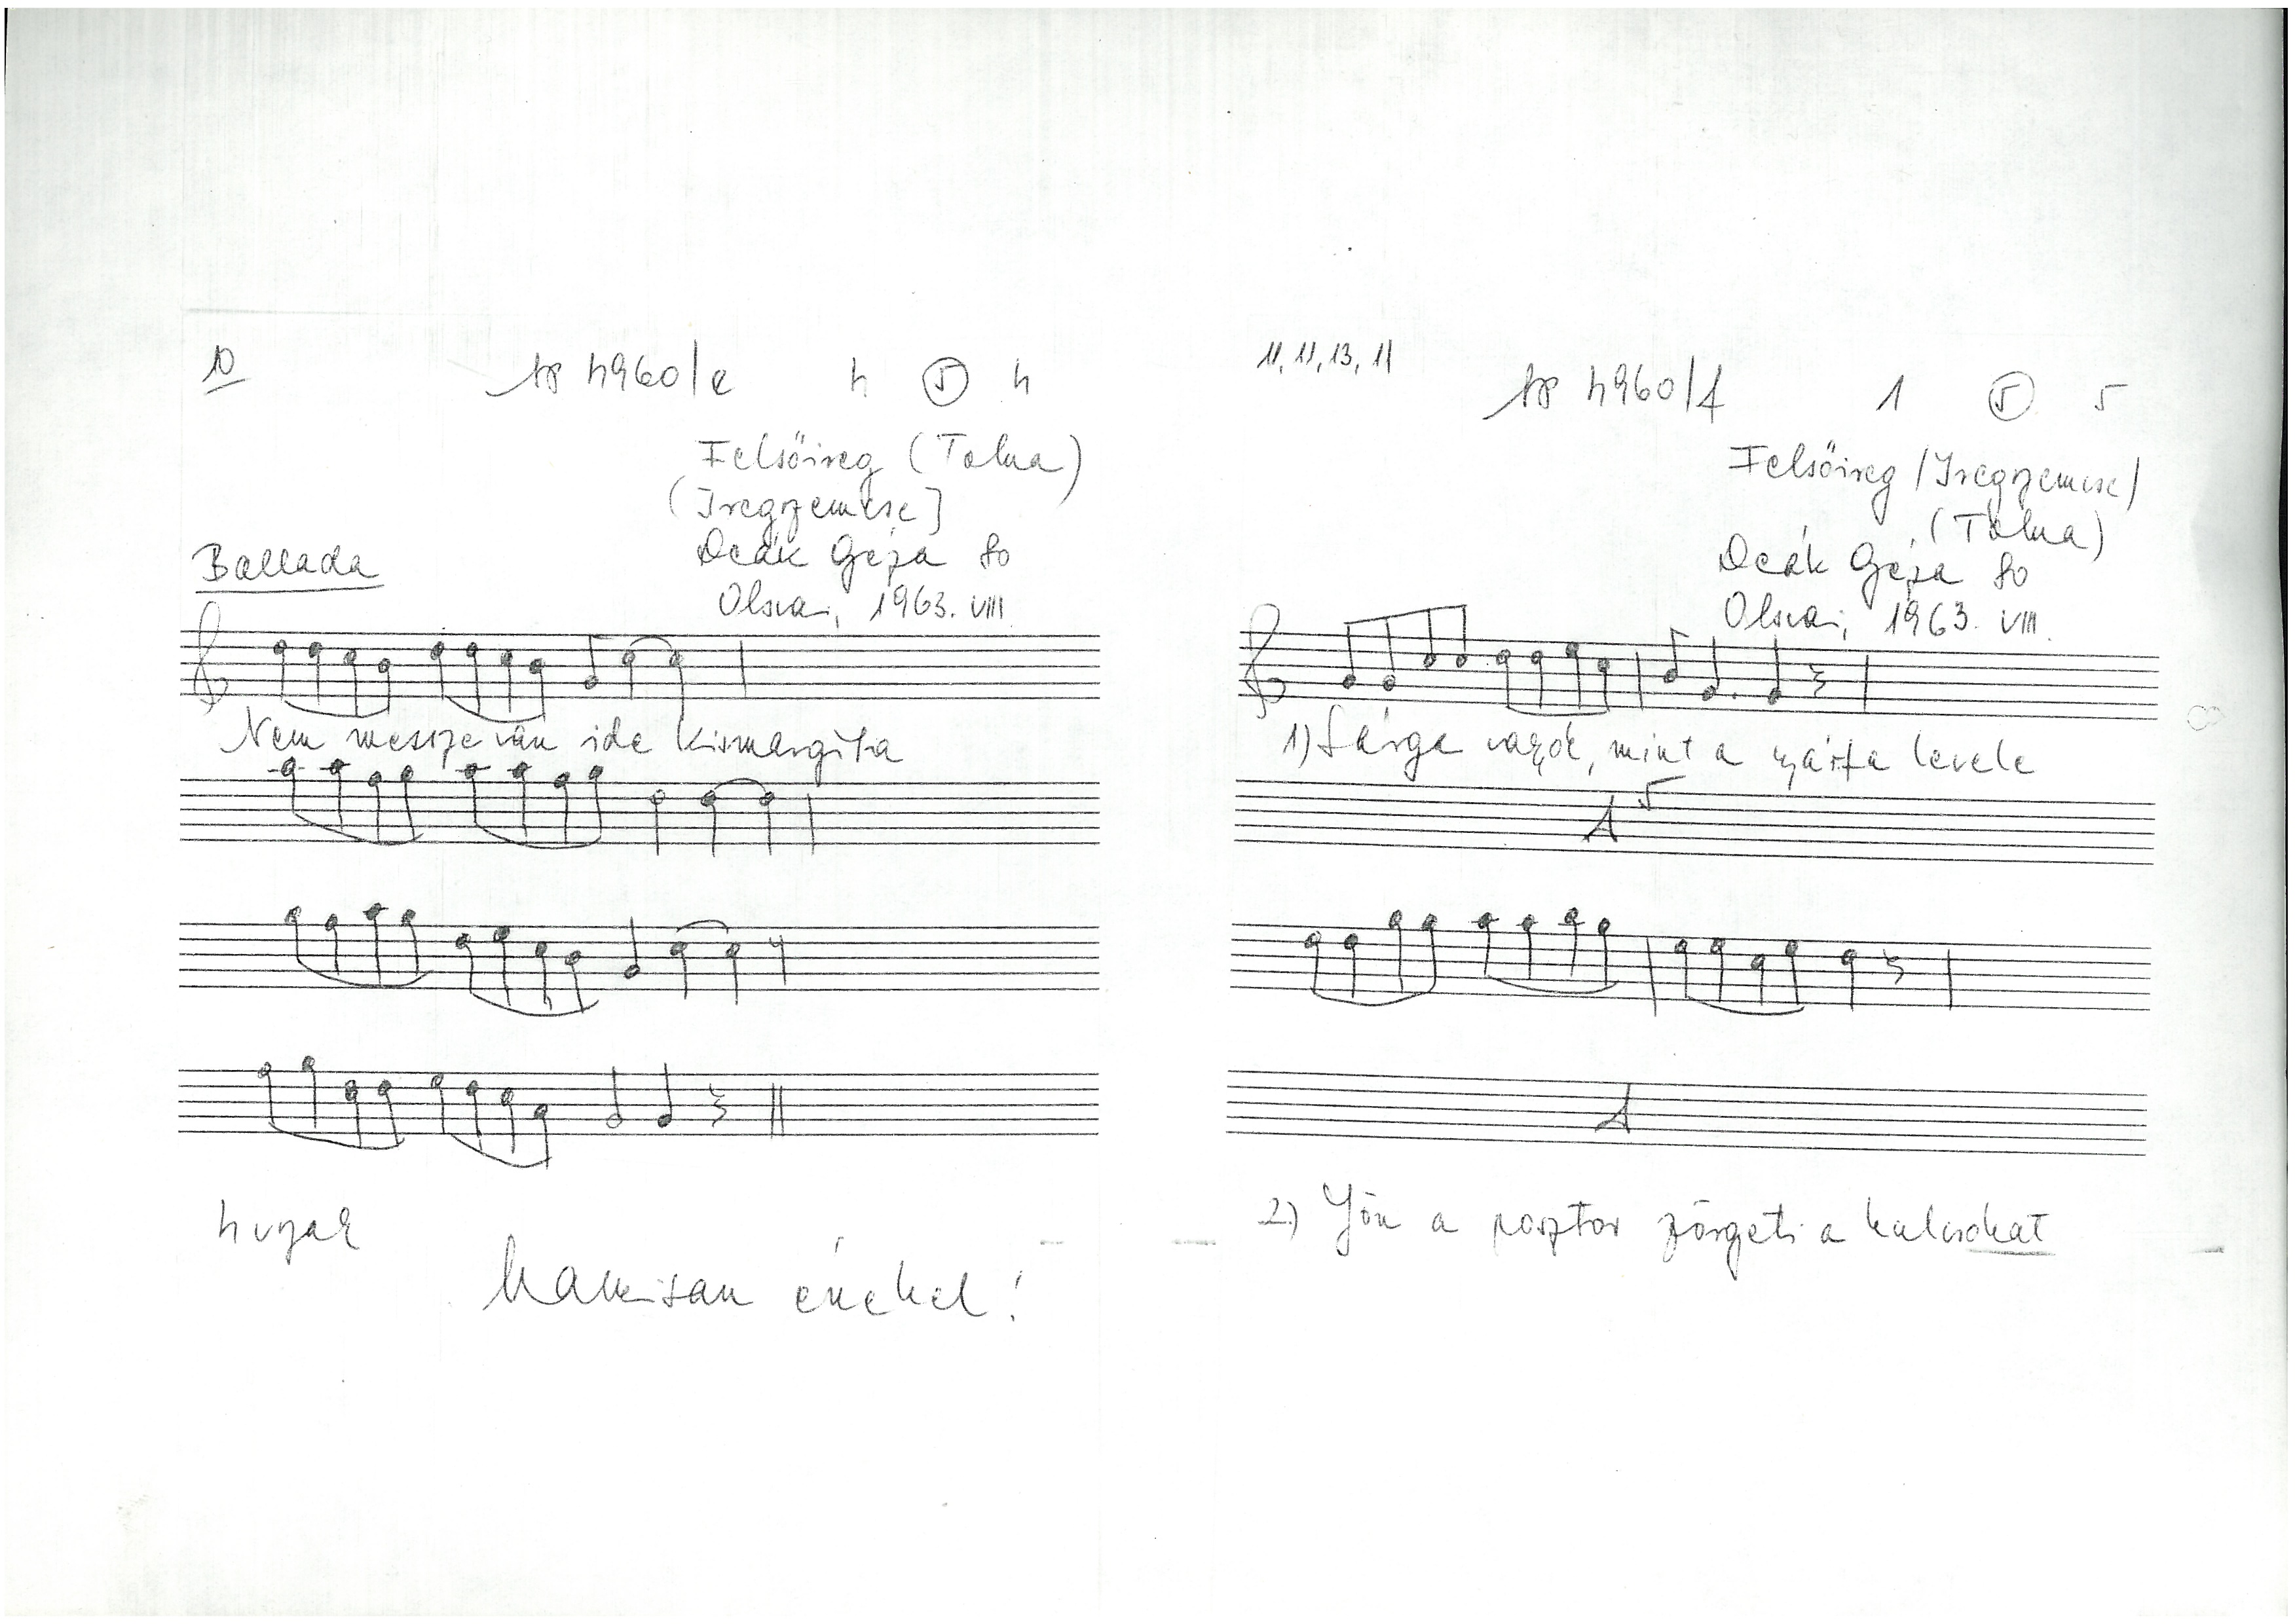 10
AP 4960/e 4 5 4
Felsőireg (Tolna)
(Iregszemcse]
Deák Géza 80
Olsvai, 1963. VIII.
Ballada
Nem messze van ide kismargita
hugak
Hamisan énekel!
11, 11, 13, 11
AP 4960/f 1 5 5
Felsőireg /Iregszemcse/
(Tolna)
Deák Géza 80
Olsvai, 1963. VIII.
1) Sárga vagyok, mint a nyárfa levele
A 5
A
2) Jön a posztos zörgeti a kulcsokat